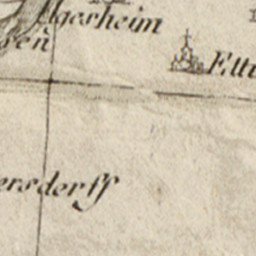 Agersheim
ren
Etti
ersdorff